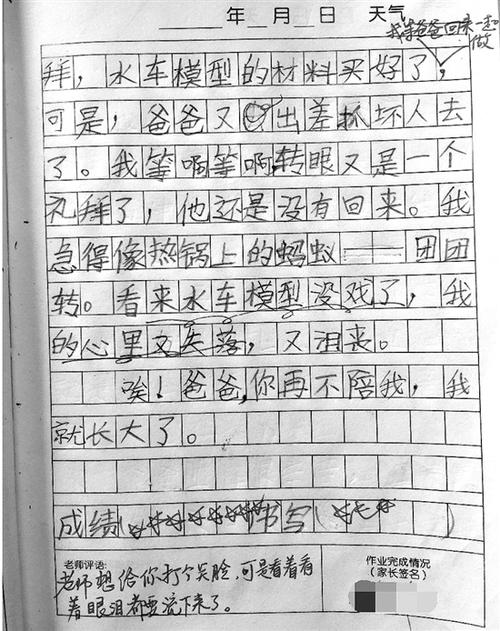 年 月 日 天气
我等爸爸回来一起
做
拜，水车模型的材料买好了，
可是，爸爸又出差抓坏人去
了。我等啊等啊，转眼又是一个
礼拜了，他还是没有回来。我
急得像热锅上的蚂蚁——团团
转。看来水车模型没戏了，我
的心里又失落，又沮丧。
唉！爸爸，你再不陪我，我
就长大了。
成绩（ 书写（ ）
老师评语:
老师想给你打个笑脸，可是看着看
着眼泪都要流下来了。
作业完成情况
（家长签名）